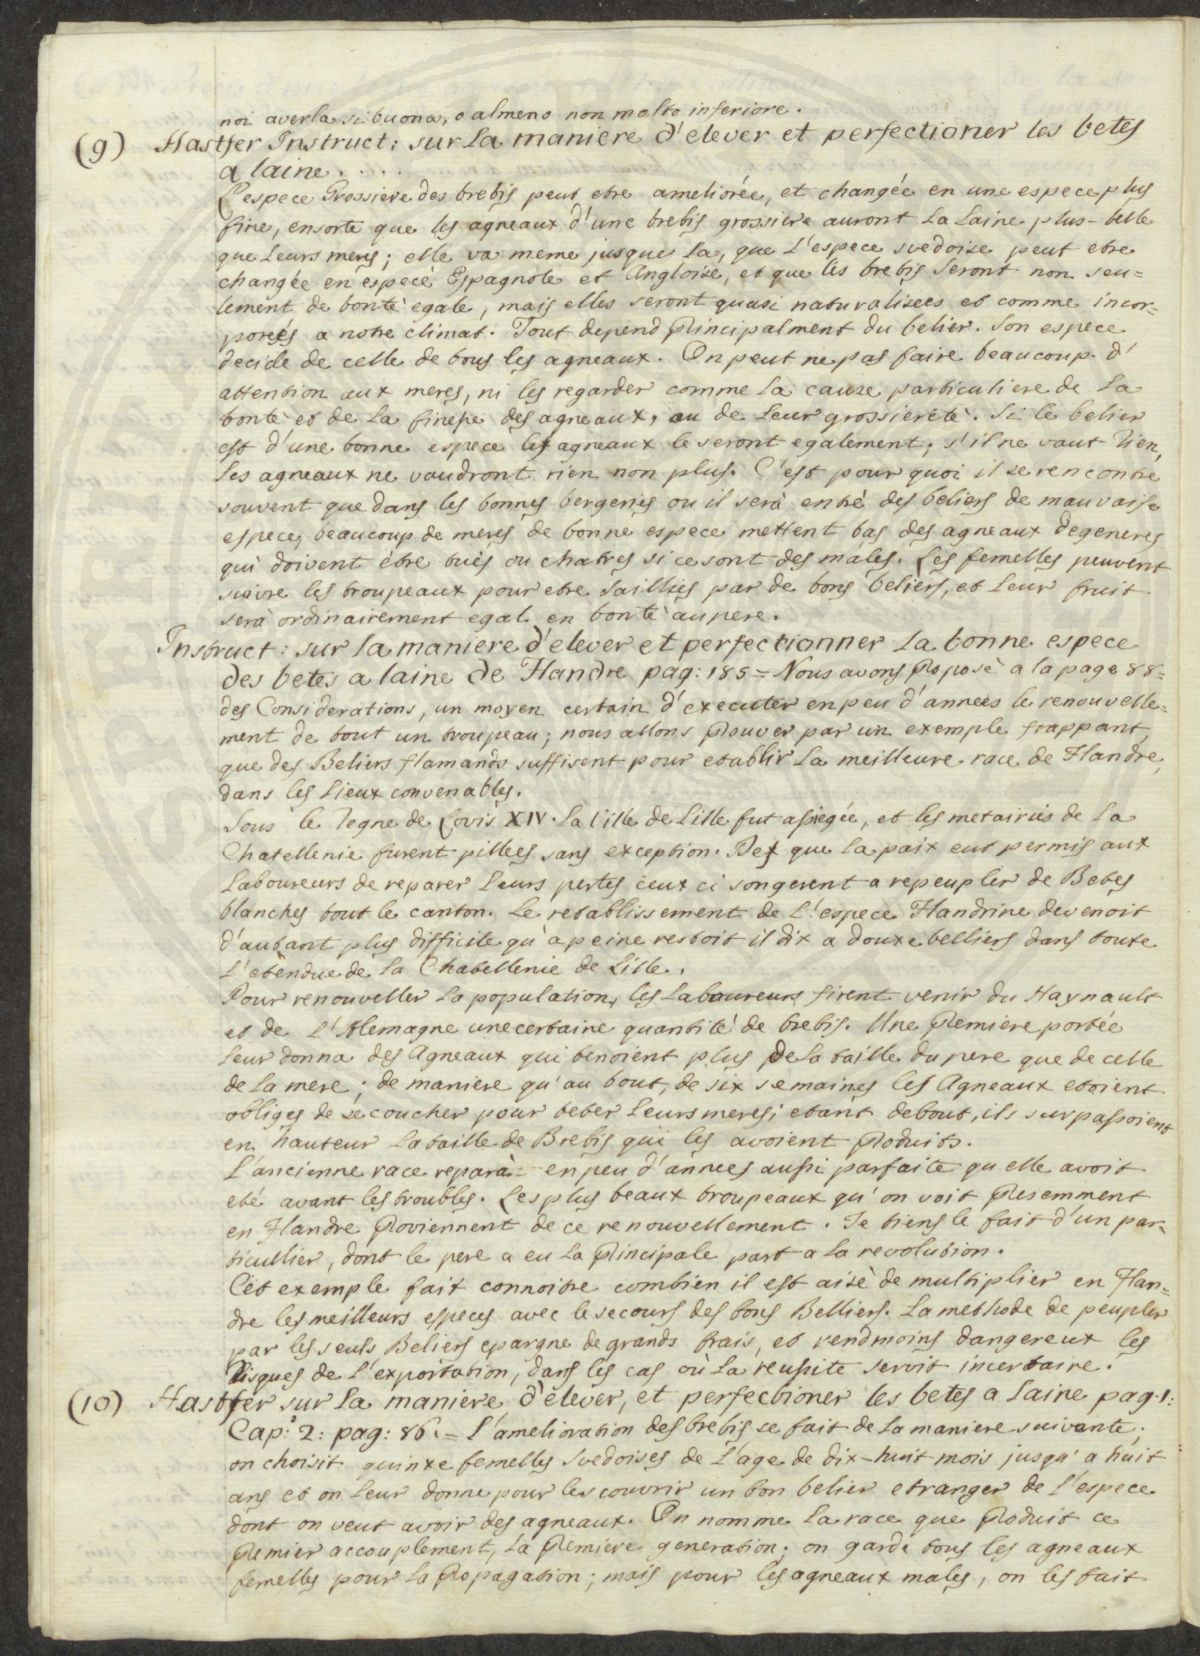 noi averla si buona, o almeno non molto inferiore.
(9) Hastfer Instruct: sur la maniere d'elever et perfectioner les betes
a laine. . . . .
L'espece Grossiere des brebis peut etre ameliorée, et changée en une espece plus
fine, ensorte que les agneaux d'une brebis grossiere auront la laine plus-belle
que leurs meres; elle va meme jusque la, que l'espece svedoise peut etre
changée en espece Espagnole et Angloise, et que les brebis seront non seu=
lement de bonté egale, mais elles seront quasi naturalisées et comme incor=
porées a notre climat. Tout depend principalment du belier. Son espece
decide de celle de tous les agneaux. On peut ne pas faire beaucoup d'
attention aux meres, ni les regarder comme la cause particuliere de la
bonté et de la finesse des agneaux, ou de leur grossiereté. Si le belier
est d'une bonne espece les agneaux le seront egalement; s'il ne vaut rien,
les agneaux ne vaudront rien non plus. C'est pour quoi il se rencontre
souvent que dans les bonnes bergeries ou il serà entré des beliers de mauvaise
espece, beaucoup de meres de bonne espece mettent bas des agneaux degeneres
qui doivent étre tués ou chatres si ce sont des males. Les femelles peuvent
suivre les troupeaux pour etre saillies par de bons beliers, et leur fruit
serà ordinairement egal en bonté au pere.
Instruct: sur la maniere d'elever et perfectionner la bonne espece
des betes a laine de Flandre pag: 185 = Nous avons proposé a la page 88=
des Considerations, un moyen certain d'executer en peu d'années le renouvelle=
ment de tout un troupeau; nous allons prouver par un exemple frappant,
que des Beliers flamands suffisent pour etablir la meilleure race de Flandre,
dans les lieux convenables.
Sous le regne de Lovis XIV. la ville de Lille fut assiegée, et les metairies de la
Chatellenie furent pillees sans exception. Des que la paix eut permis aux
Laboureurs de reparer leurs pertes ceux ci songerent a repeupler de Betes
blanches tout le canton. Le retablissement de l'espece Flandrine devenoit
d'autant plus difficile qu'a peine restoit il dix a douxe belliers dans toute
l'etendue de la Chatellenie de Lille.
Pour renouveller la population, les Laboureurs firent venir du Haynault
et de l'Alemagne une certaine quantité de brebis. Une premiere portée
leur donna des Agneaux qui tenoient plus de la taille du pere que de celle
de la mere; de maniere qu'au bout, de six semaines les Agneaux etoient
obliges de se coucher pour teter leurs meres; etant debout, ils surpassoient
en hauteur la taille de Brebis qui les avoient produits.
L'ancienne race reparà en peu d'annees aussi parfaite qu elle avoit
eté avant les troubles. Les plus beaux troupeaux qu'on voit presemment
en Flandre proviennent de ce renouvellement. Je tiens le fait d'un par=
ticullier, dont le pere a eu la principale part a la revolution.
Cet exemple fait connoitre combien il est aisè de multiplier en Flan=
dre les meilleurs especes avec le secours des bons Belliers. La methode de peupler
par les seuls Beliers epargne de grands frais, et rend moins dangereux les
risques de l'exportation, dans les cas où la reussite seroit incertaine.
(10) Hastfer sur la maniere d'élever, et perfectioner les betes a laine pag. 1:
Cap: 2: pag: 86. = l'amelioration des brebis se fait de la maniere suivante;
on choisit quinxe femelles Svedoises de l'age de dix-huit mois jusqu' a huit
ans et on leur donne pour les couvrir un bon belier etranger de l'espece
dont on veut avoir des agneaux. On nomme la race que produit ce
premier accouplement, la premiere generation; on garde tous les agneaux
femelles pour la propagation; mais pour les agneaux males, on les fait